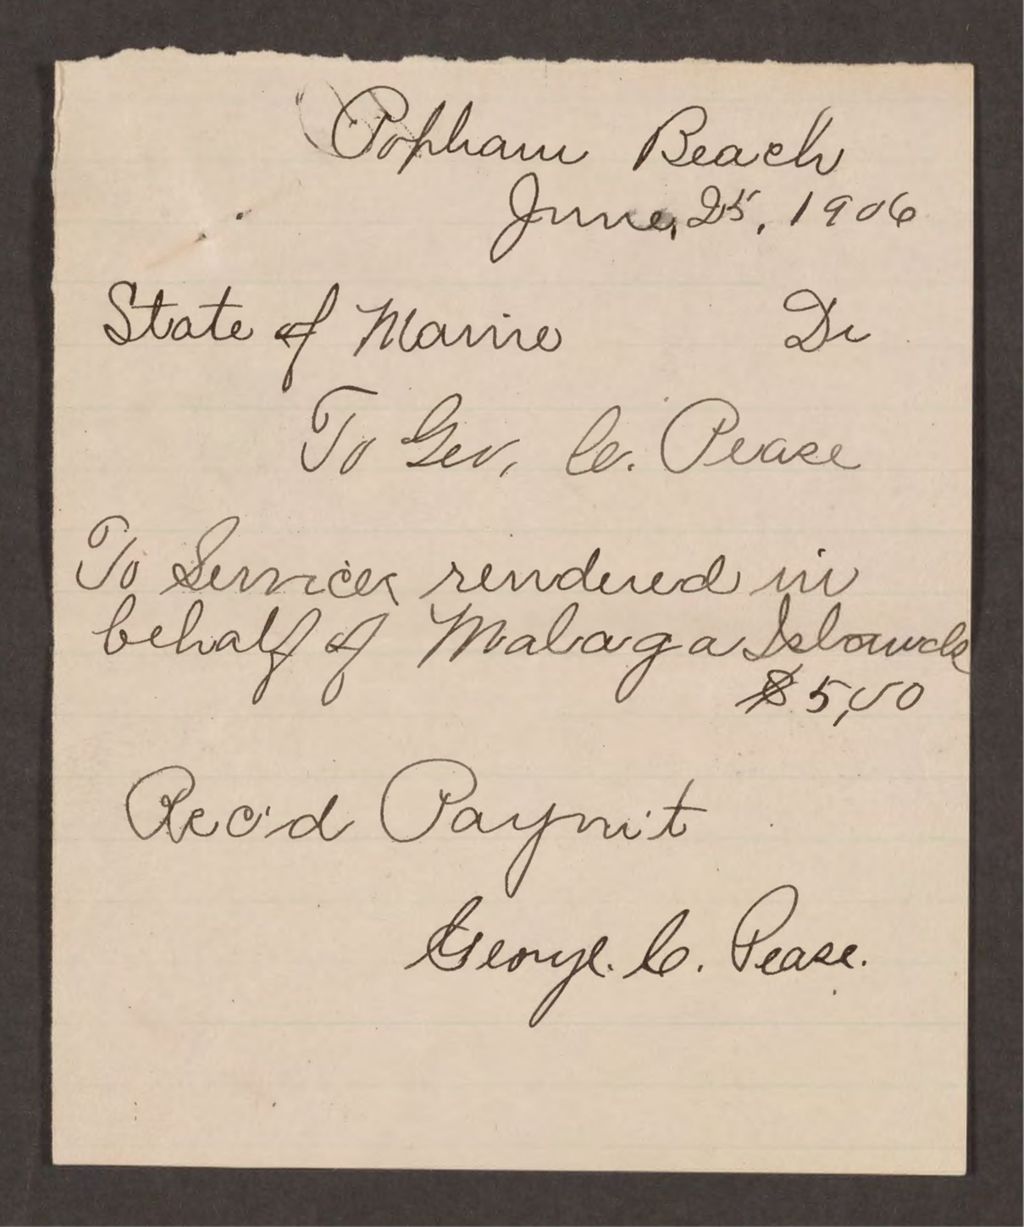 Popham Beach
June, 25, 1906
State of Maine Dr
To Geo, C. Pease
To Services rendered in
behalf of Malaga Islands
$5,00
Rec'd Paym't
George. C. Pease.